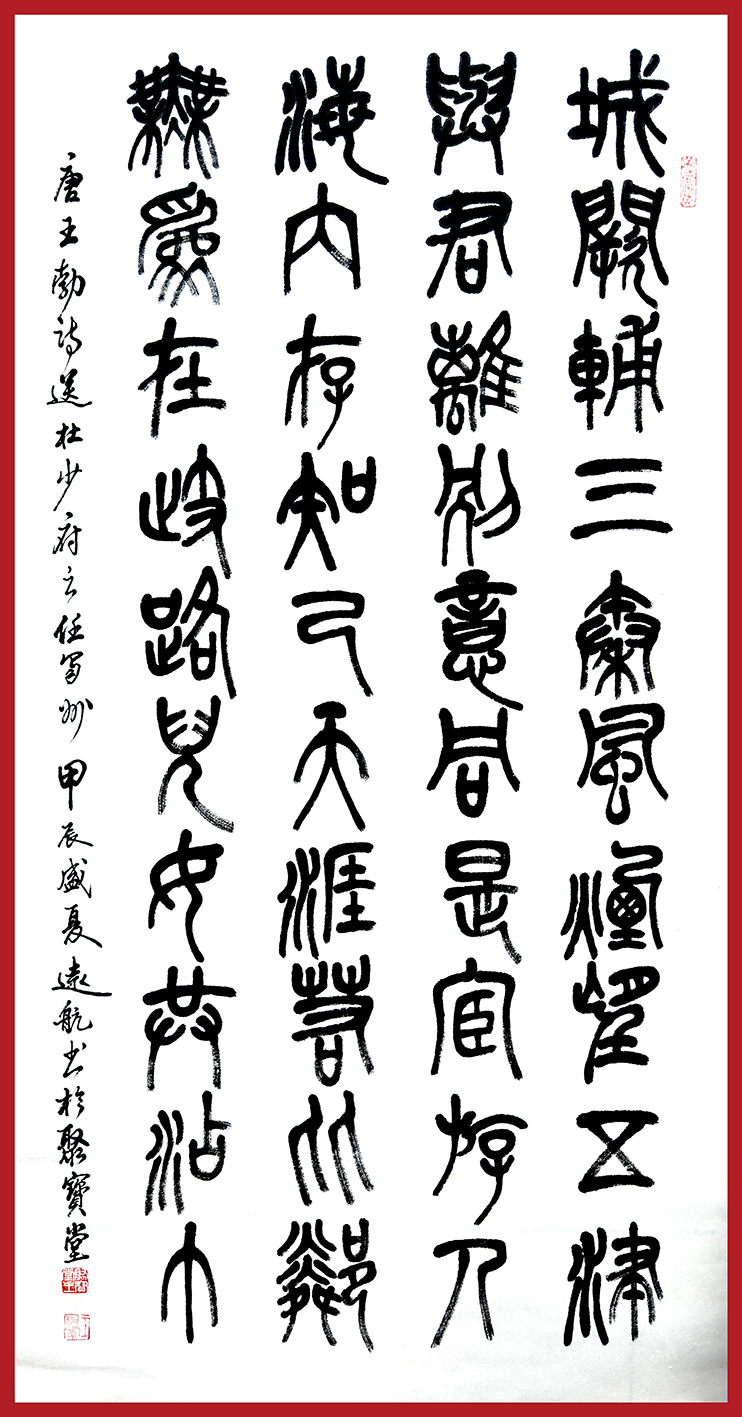 城闕輔三秦風煙望五津
與君離別意同是宦游人
海內存知己天涯若比鄰
無爲在歧路兒女共沾巾
唐王勃詩送杜少府之任蜀州 甲辰盛夏遠航书於聚寶堂